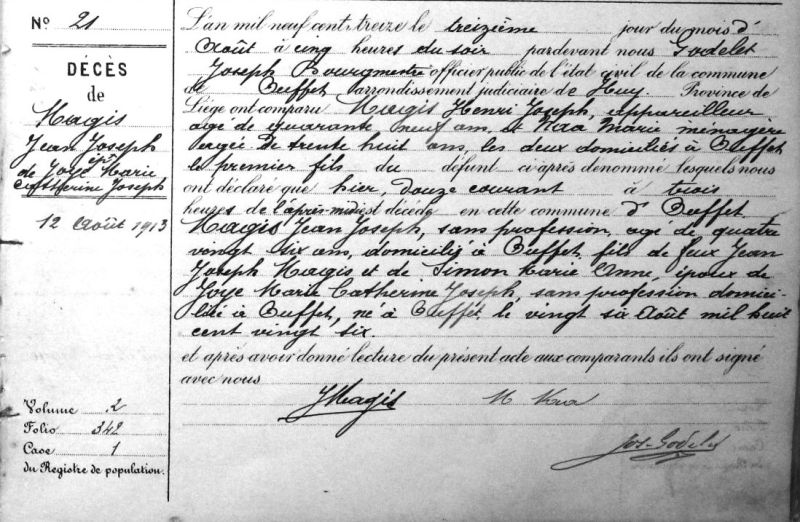 N° 21
DÉCÈS
de
Magis
Jean Joseph
ép.
de Joye Marie
Catherine Joseph
12 Août 1913
Volume 2
Folio 342
Case 1
du Registre de population.
L'an mil neuf cent treize le treizième jour du mois d'
Août à cinq heures du soir pardevant nous Godelet
Joseph Bourgmestre officier public de l'état civil de la commune
de Ouffet, arrondissement judiciaire de Huy. Province de
Liége ont comparu Magis Henri Joseph, appareilleur
agé de quarante neuf ans, et Naa Marie ménagère
agée de trente huit ans, les deux domiciliés à Ouffet
le premier fils du défunt ci après dénommé lesquels nous
ont déclaré que hier, douze courant à trois
heures de l'après-midi est décédé en cette commune d' Ouffet
Magis Jean Joseph, sans profession, agé de quatre
vingt six ans, domicilié à Ouffet, fils de feux Jean
Joseph Magis et de Simon Marie Anne, époux de
Joye Marie Catherine Joseph, sans profession domici-
liée à Ouffet, né à Ouffet le vingt six Août mil huit
cent vingt six.
et après avoir donné lecture du présent acte aux comparants ils ont signé
avec nous
JMagis
Jos. Godelet